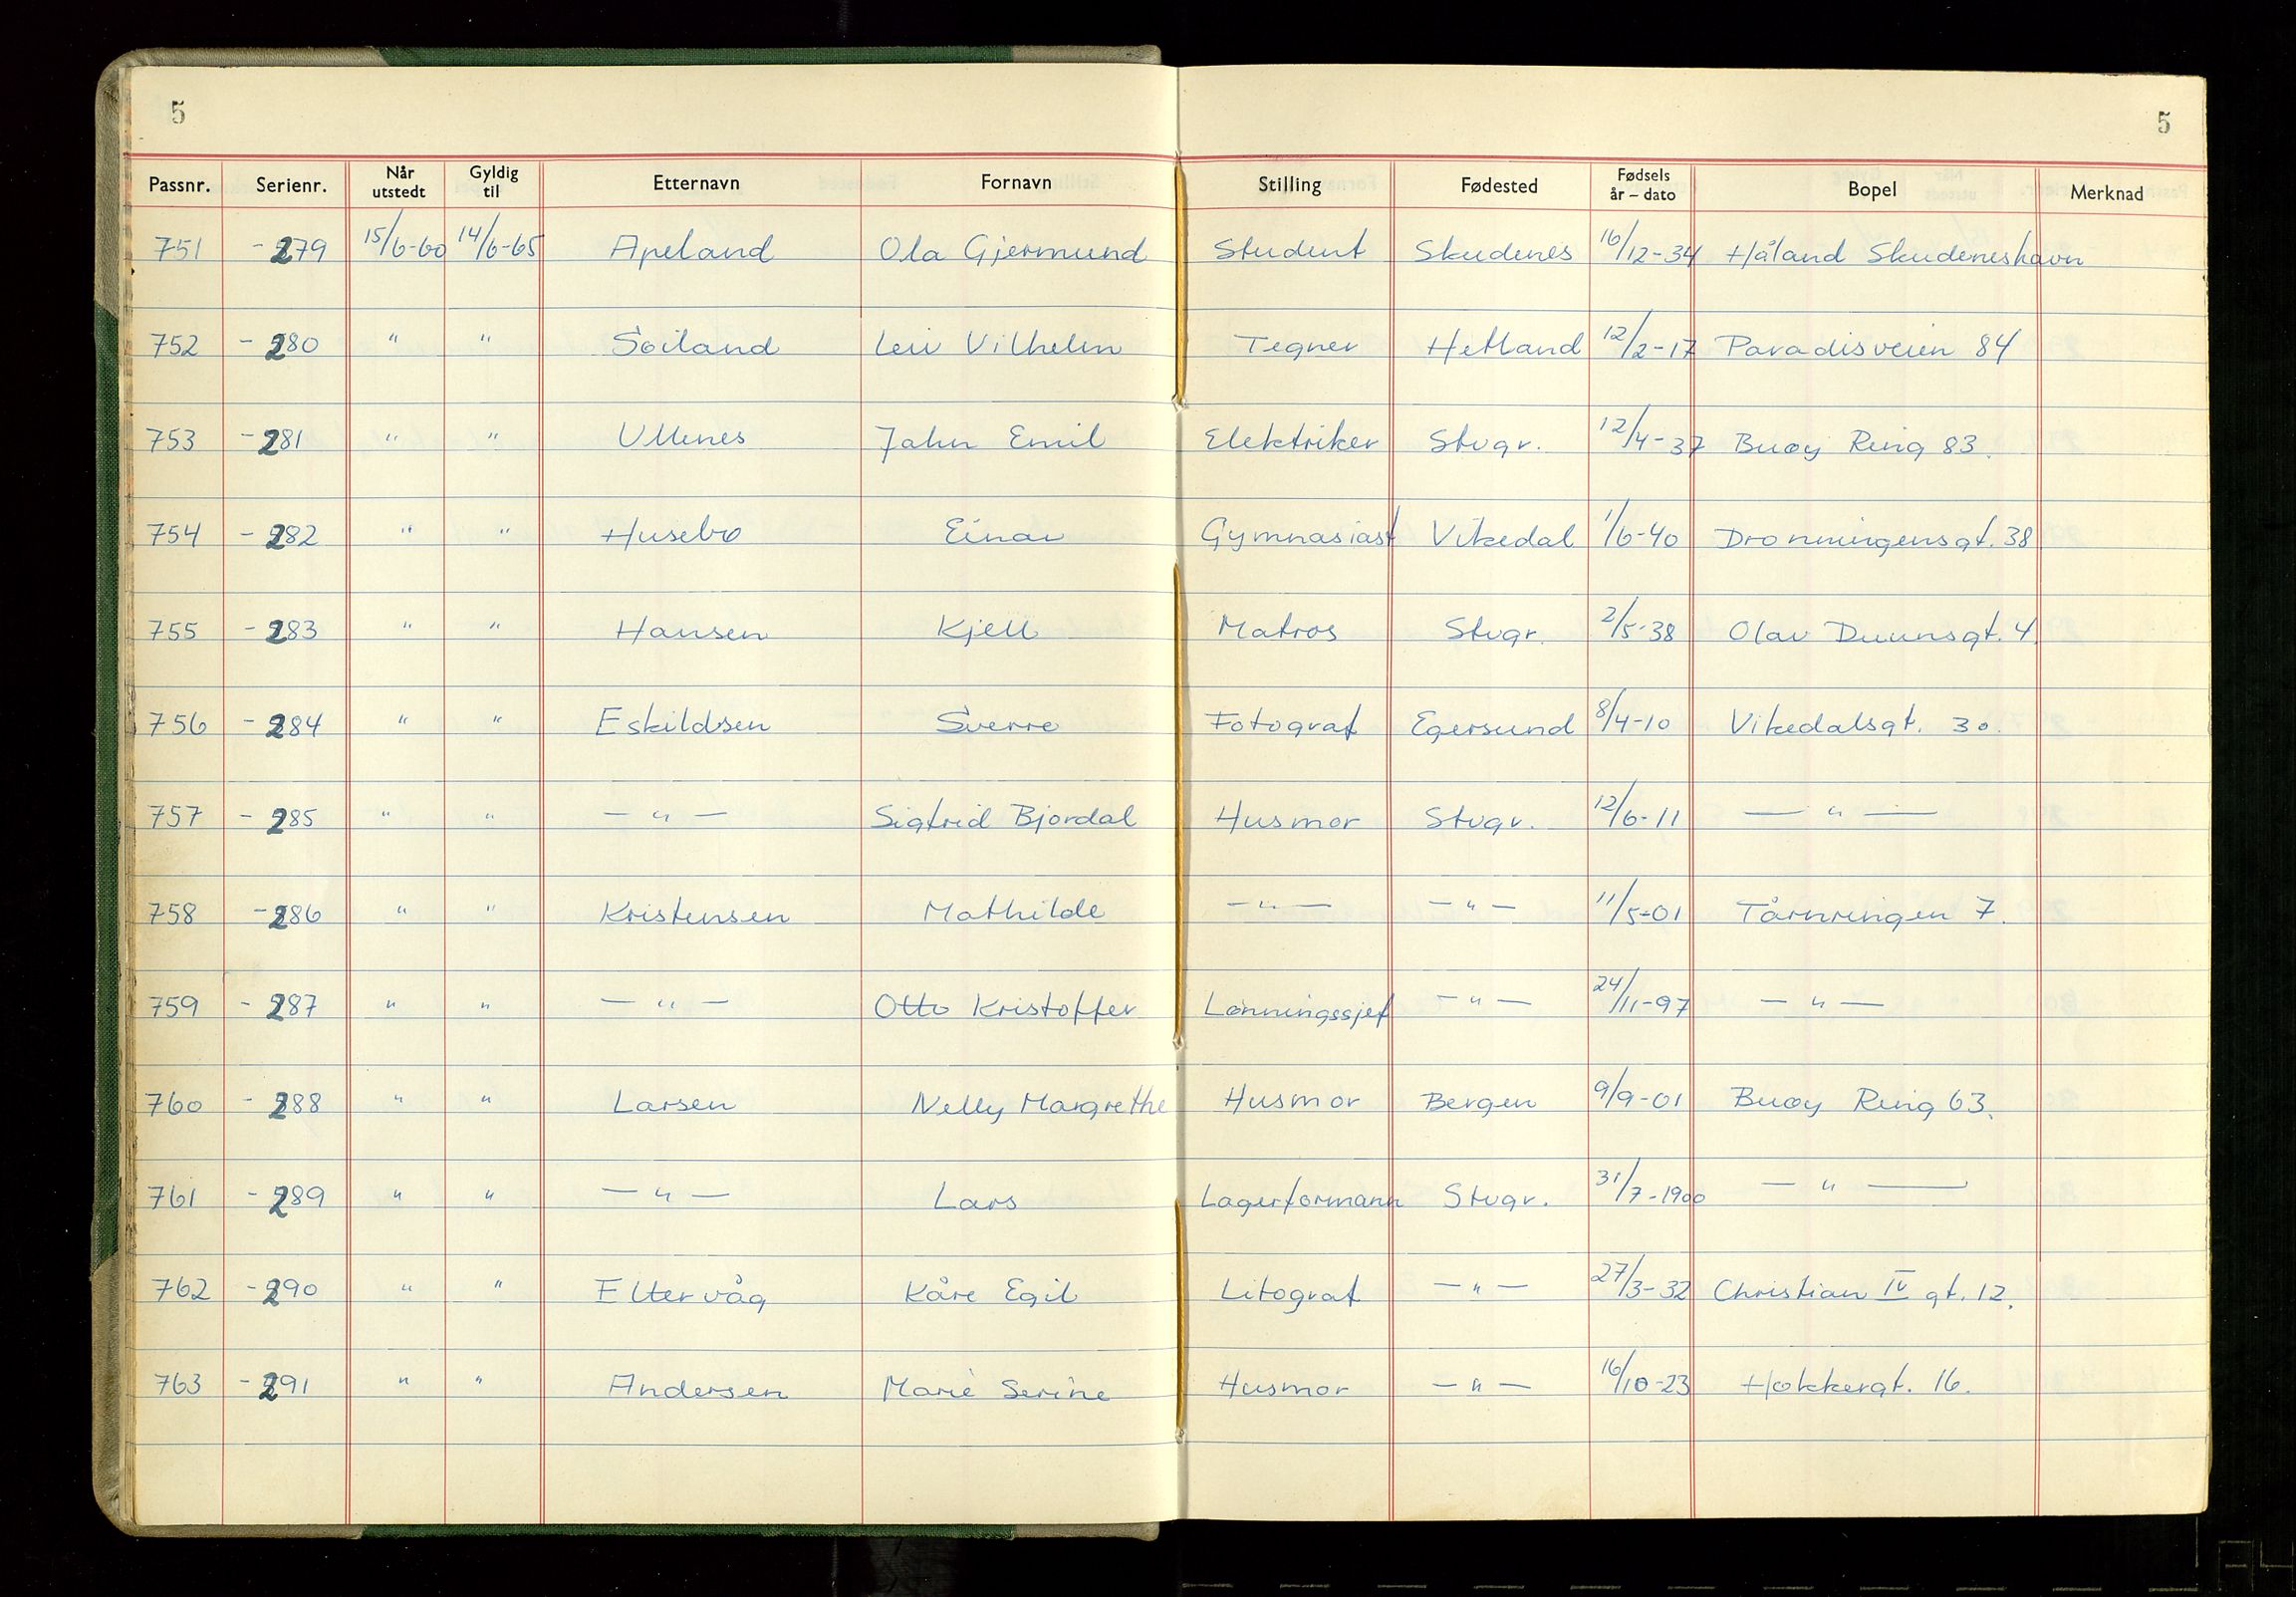 5 5
Passnr. Serienr. Når utstedt Gyldig til Etternavn Fornavn Stilling Fødested Fødsels år – dato Bopel Merknad
751 -279 15/6-60 14/6-65 Apeland Ola Gjermund Student Skudenes 16/12-34 Håland Skudeneshavn
752 -280 " " Soiland Leiv Vilhelm Tegner Hetland 12/2-17 Paradisveien 84
753 -281 " " Ullenes Jahn Emil Elektriker Stvgr. 12/4-37 Buøy Ring 83.
754 -282 " " Husebø Einar Gymnasiast Vikedal 1/6-40 Dronningensgt. 38
755 -283 " " Hansen Kjell Matros Stvgr. 2/5-38 Olav Duunsgt. 4.
756 -284 " " Eskildsen Sverre Fotograf Egersund 8/4-10 Vikedalsgt. 30.
757 -285 " " — " — Sigfrid Bjordal Husmor Stvgr. 12/6-11 — " —
758 -286 " " Kristensen Mathilde — " — — " — 11/5-01 Tårnringen 7.
759 -287 " " — " — Otto Kristoffer Lønningssjef — " — 24/11-97 — " —
760 -288 " " Larsen Nelly Margrethe Husmor Bergen 9/9-01 Buøy Ring 63.
761 -289 " " — " — Lars Lagerformann Stvgr. 31/7-1900 — " —
762 -290 " " Eltervåg Kåre Egil Litograf — " — 27/3-32 Christian IV gt. 12.
763 -291 " " Andersen Marie Serine Husmor — " — 16/10-23 Hokkergt. 16.